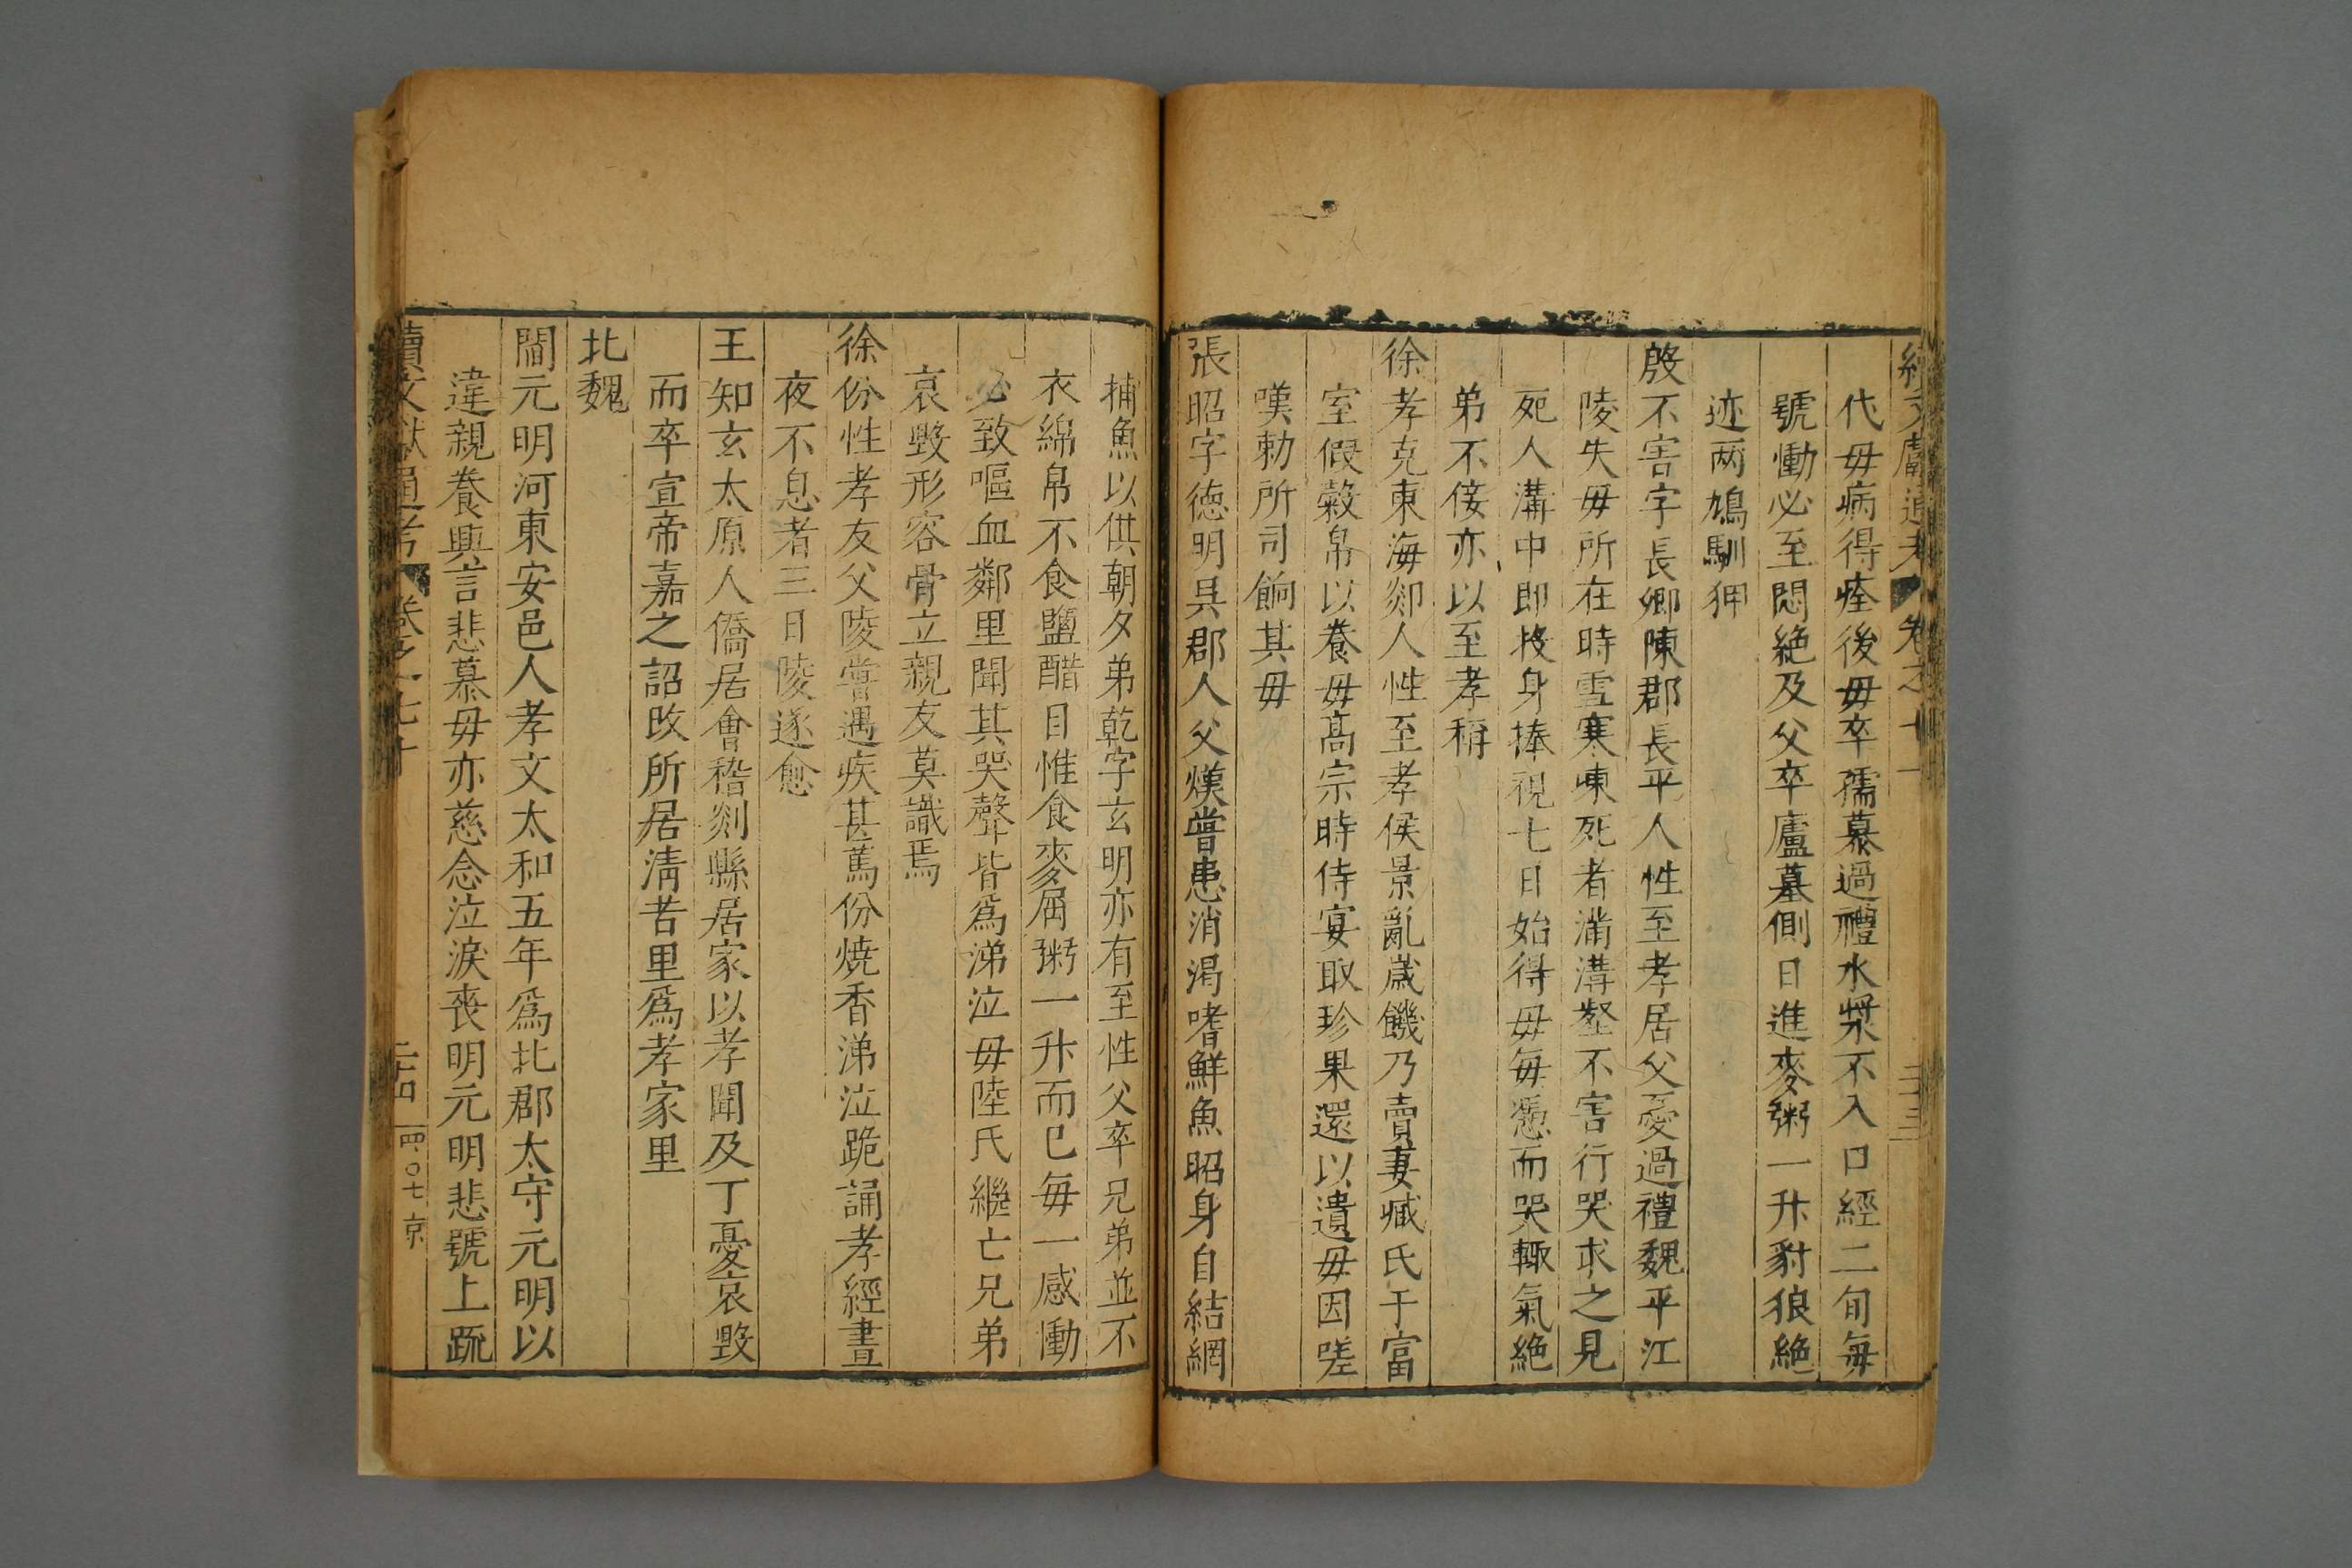 續文獻通考 卷之七十一 二十三
代毋病得痊後毋卒孺慕過禮水漿不入口經二旬每
號慟必至悶絶及父卒廬墓側日進麥粥一升豺狼絶
迹两鳩馴狎
殷不害字長卿陳郡長平人性至孝居父憂過禮魏平江
陵失毋所在時雪寒凍死者滿溝壑不害行哭求之見
死人溝中即投身捧視七日始得毋毎憑而哭輙氣絶
弟不佞亦以至孝稱
徐孝克東海郯人性至孝侯景亂歲饑乃賣妻臧氏于富
室假穀帛以養毋髙宗時侍宴取珍果還以遺毋因嗟
嘆勅所司餉其毋
張昭字德明吳郡人父熯嘗患消渴嗜鮮魚昭身自結網
捕魚以供朝夕弟乾字玄明亦有至性父卒兄弟並不
衣綿帛不食鹽醋日惟食麥屑粥一升而已每一感慟
必致嘔血鄰里聞其哭聲皆爲涕泣毋陸氏繼亡兄弟
哀毀形容骨立親友莫識焉
徐份性孝友父陵嘗遇疾甚篤份焼香涕泣跪誦孝經晝
夜不息者三日陵遂愈
王知玄太原人僑居會稽剡縣居家以孝聞及丁憂哀毀
而卒宣帝嘉之詔改所居淸苦里爲孝家里
北魏
閻元明河東安邑人孝文太和五年爲北郡太守元明以
違親養興言悲慕毋亦慈念泣淚喪明元明悲號上䟽
續文獻通考 卷之七十 二十四 四〇七 京